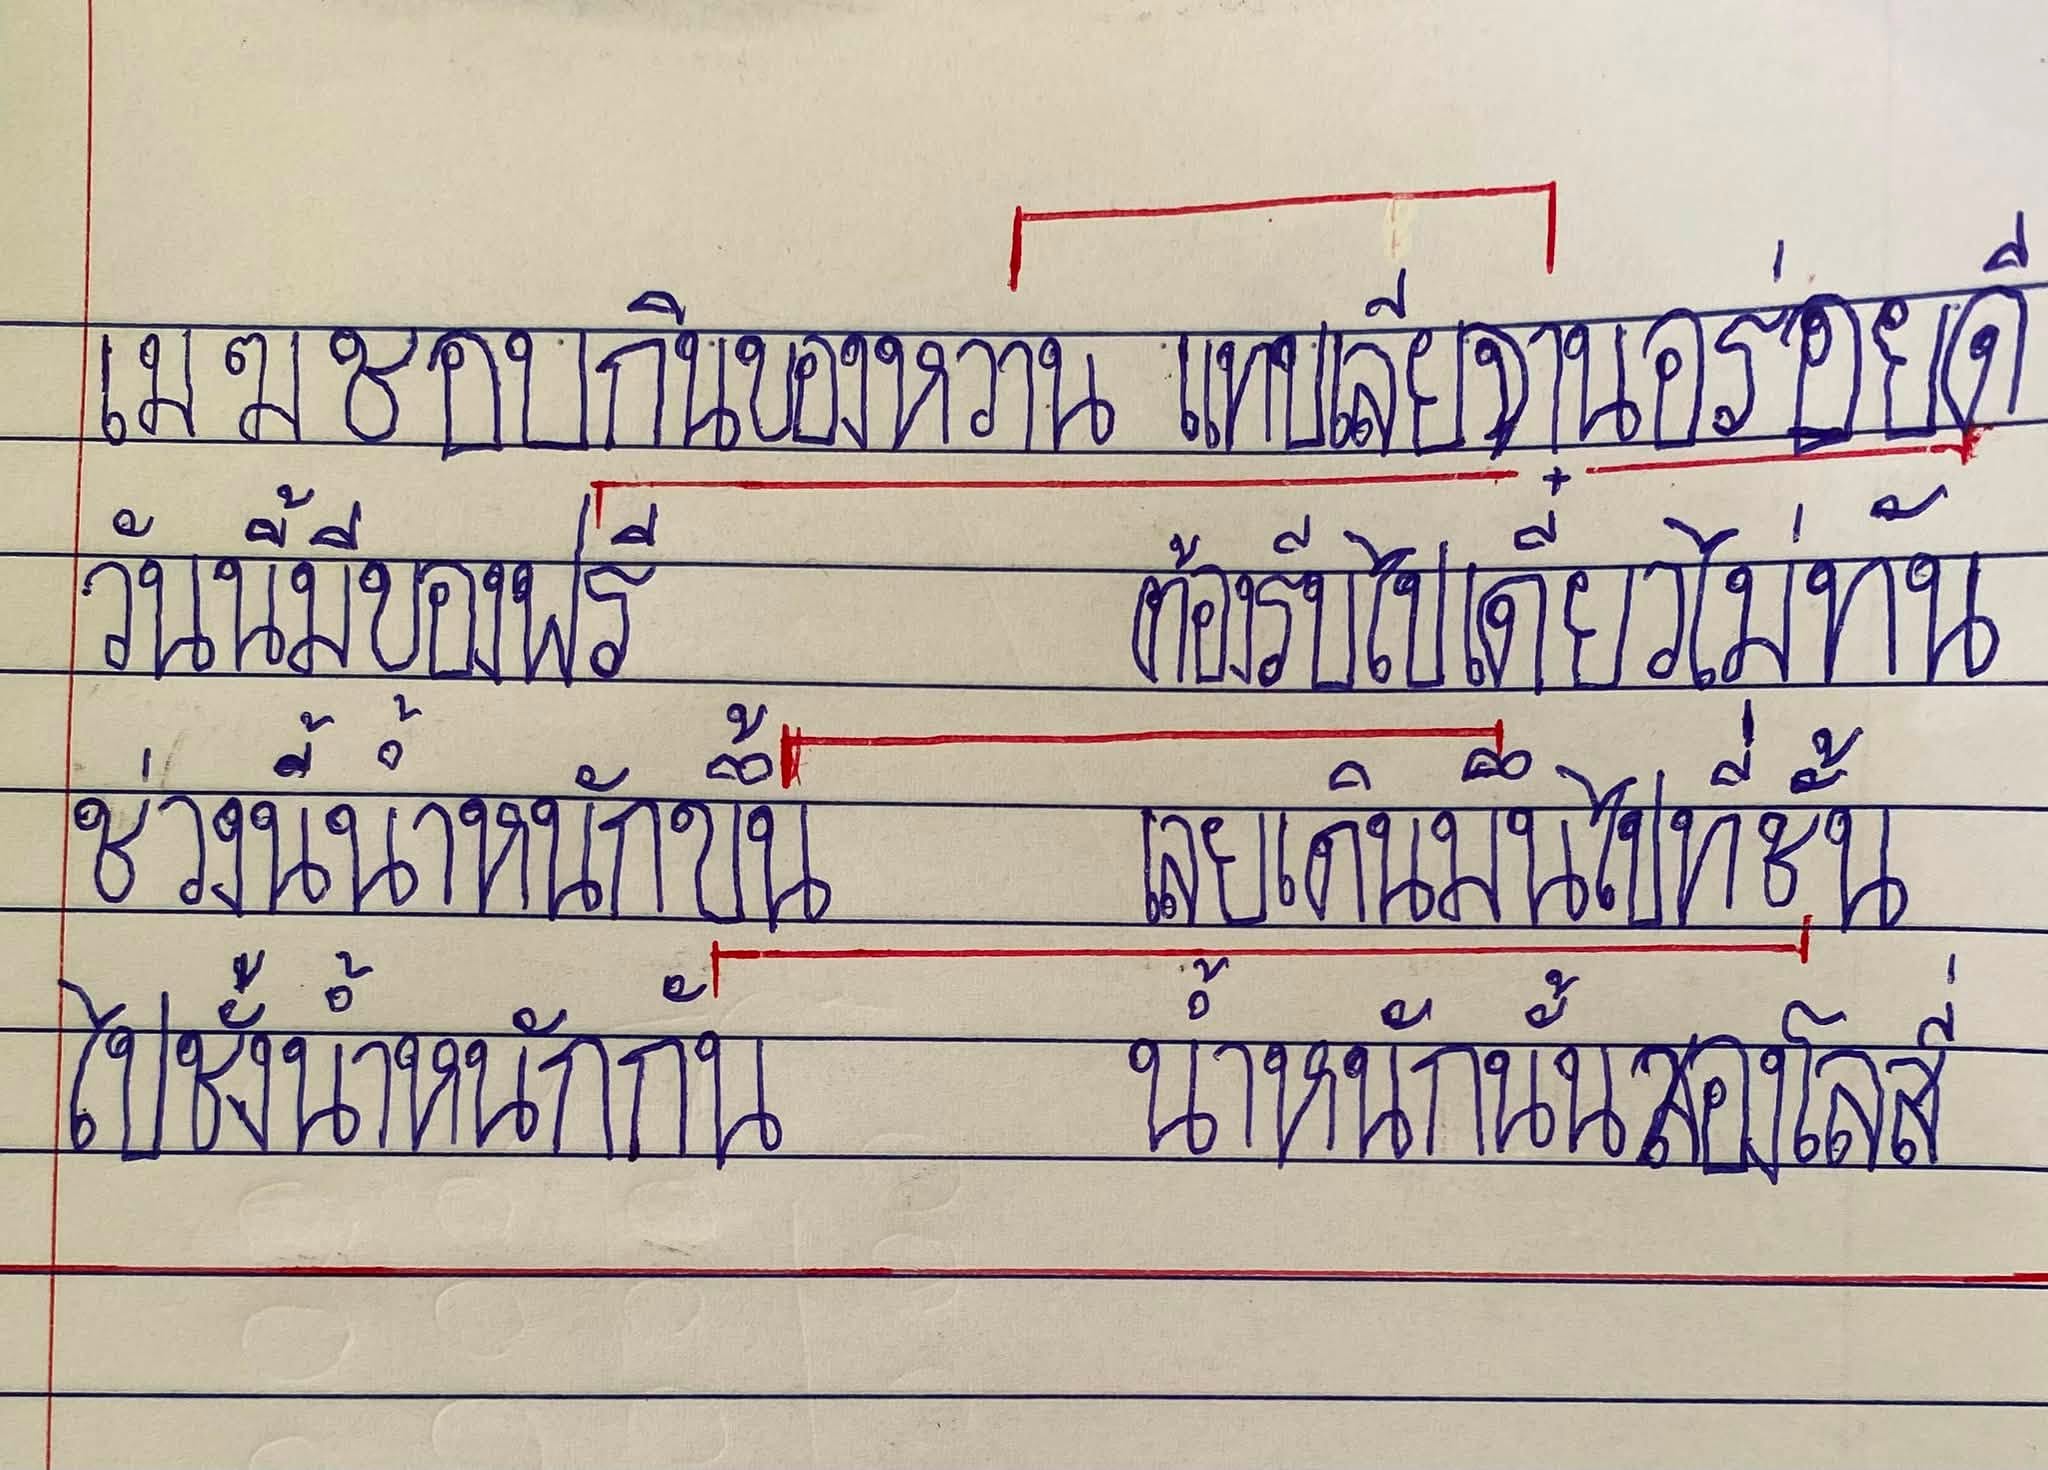 เมฆชอบกินของหวาน แทบเลียจานอร่อยดี
วันนี้มีของฟรี ต้องรีบไปเดี๋ยวไม่ทัน
ช่วงนี้น้ำหนักขึ้น เลยเดินมึนไปที่ชั้น
ไปชั้งน้ำหนักกัน น้ำหนักนั้นสองโลสี่